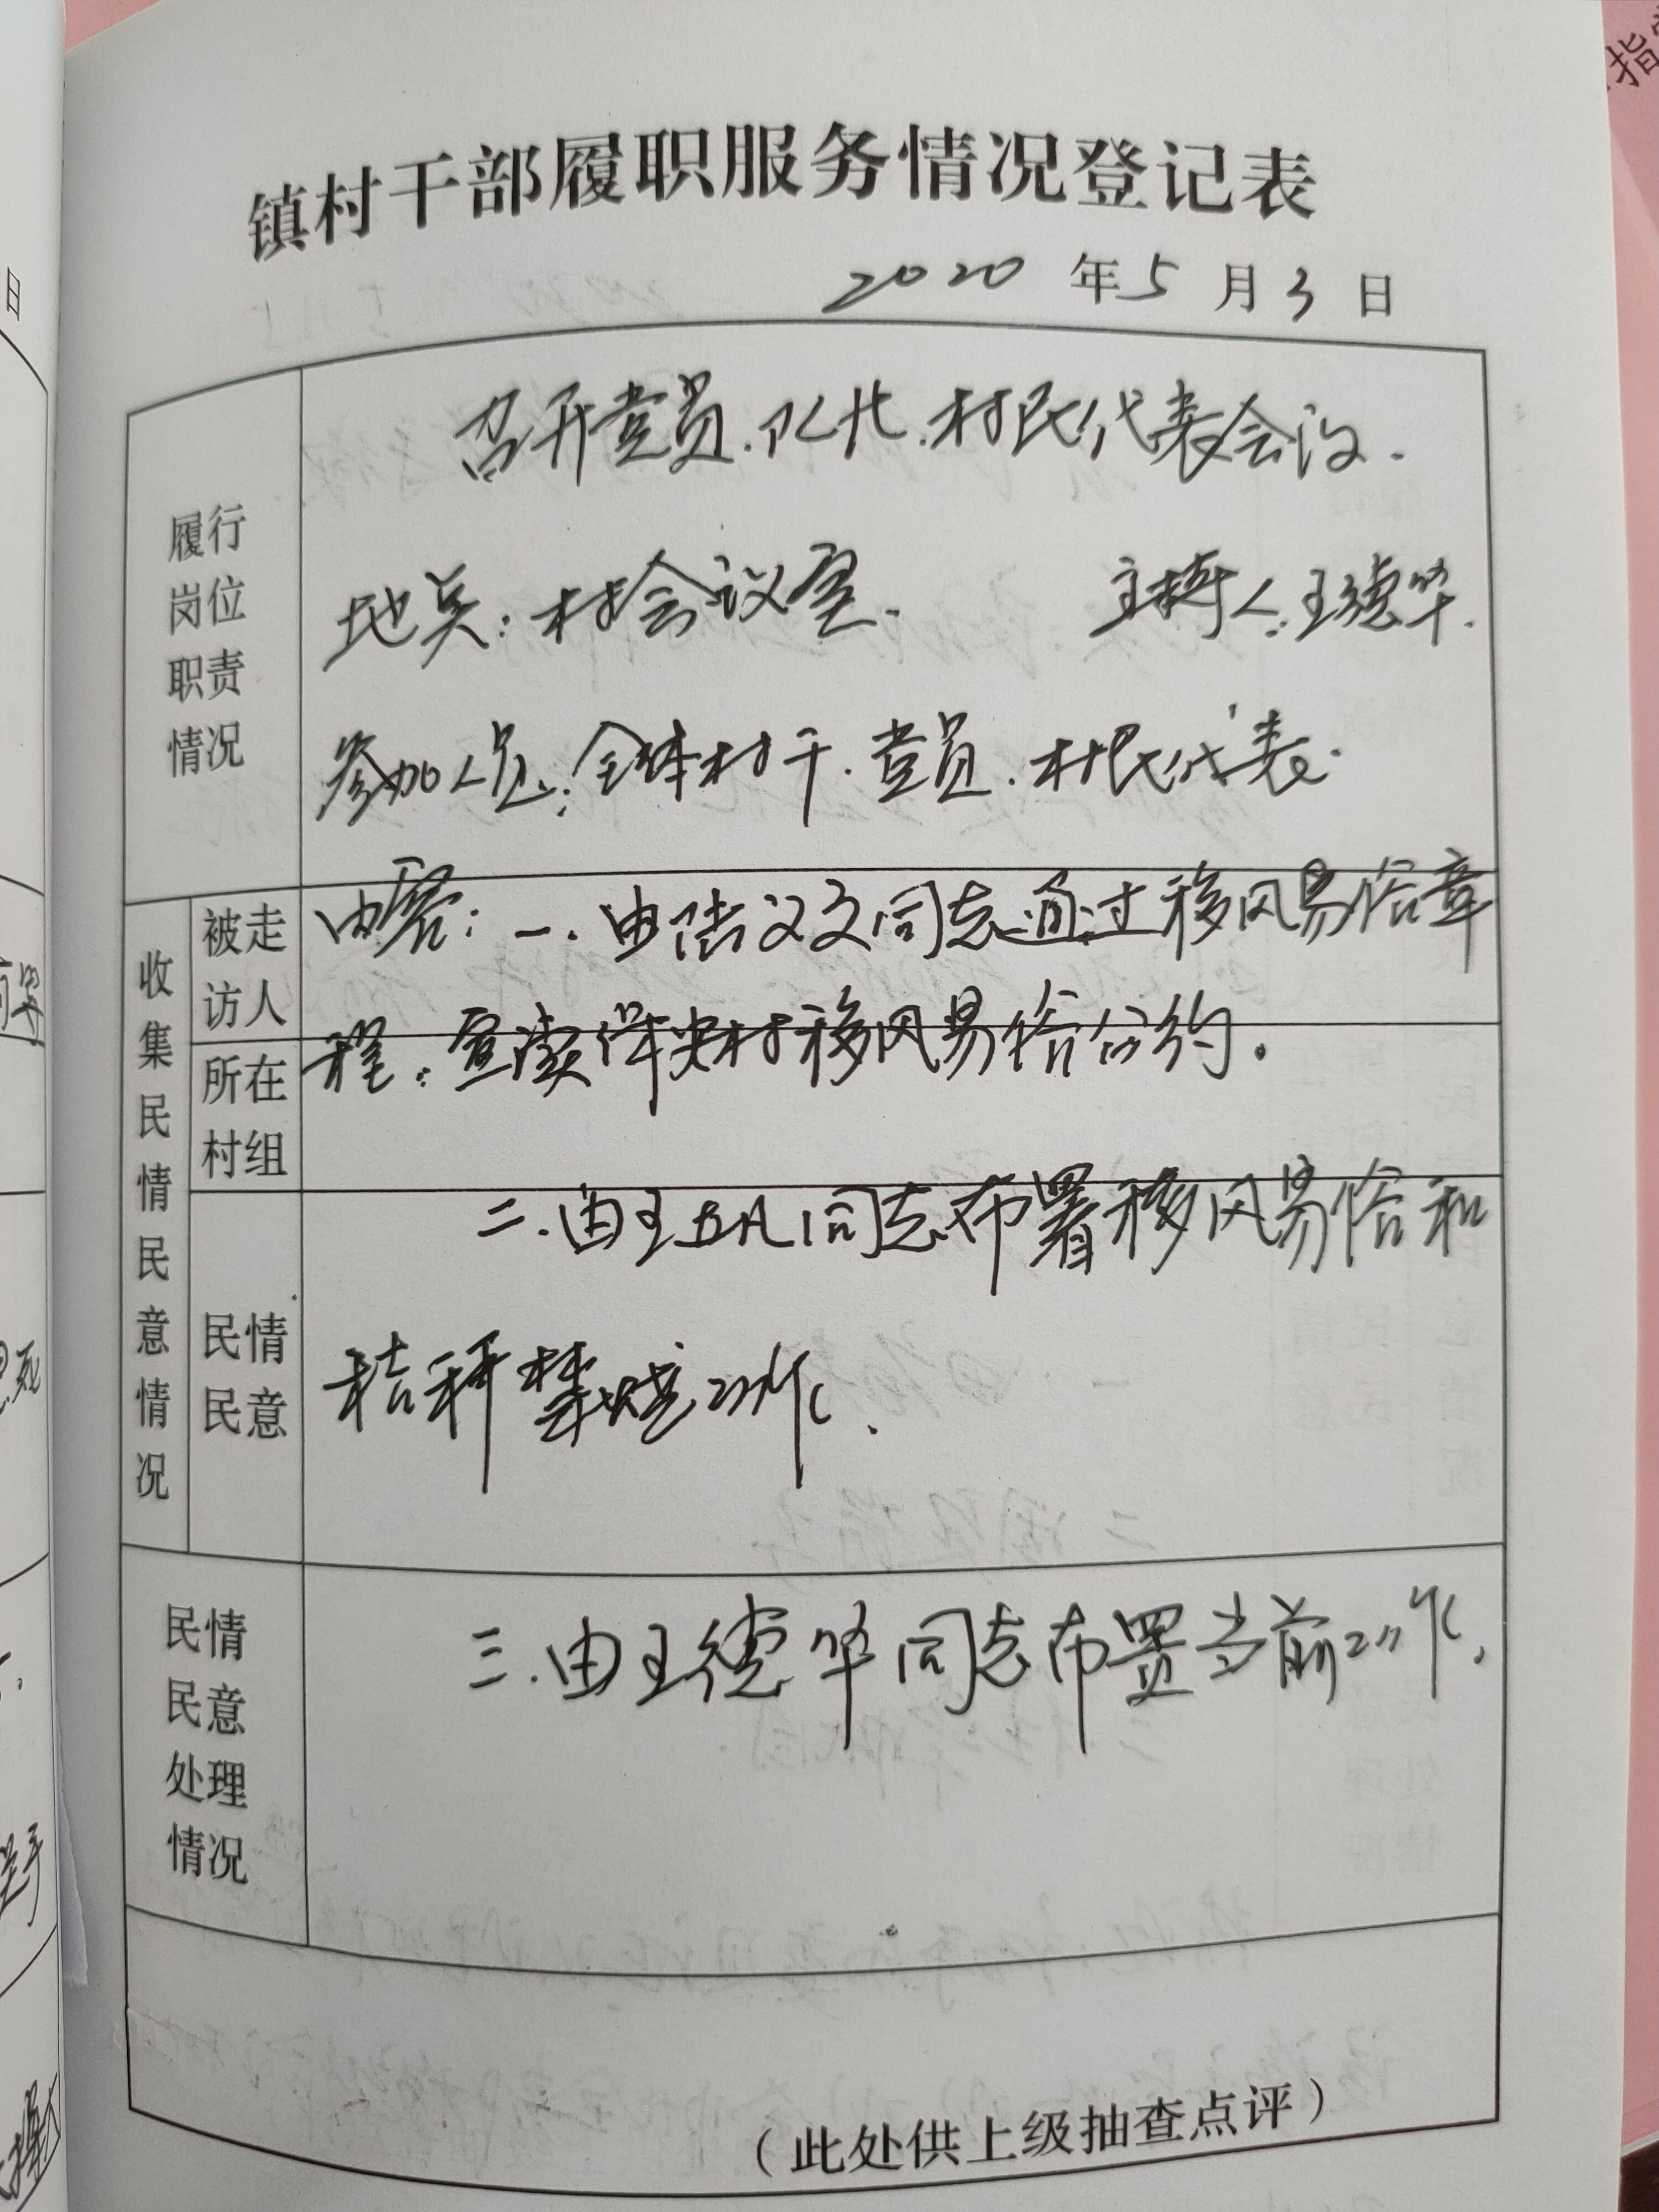 镇村干部履职服务情况登记表
2020年5月3日
履行
岗位
职责
情况
召开党员.队长.村民代表会议.
地点:村会议室. 主持人:王德华.
参加人员:全体村干.党员.村民代表.
收集民情民意情况
被走
访人
内容:一.由陆汉文同志通过移风易俗章
所在
村组
程:宣读 村移风易俗公约。
民情
民意
二.由王 同志布署移风易俗和
秸秆禁烧工作.
民情
民意
处理
情况
三.由王德华同志布置当前工作.
(此处供上级抽查点评)
日
指